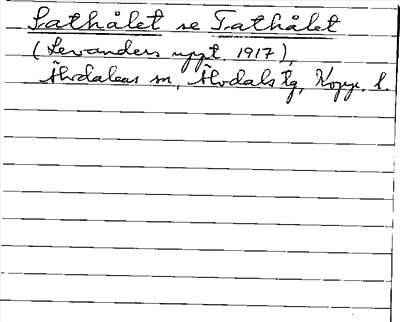 Sathålet se Tathålet
(Levanders uppt. 1917),
Älvdalens sn, Älvdals tg, Kopp. l.